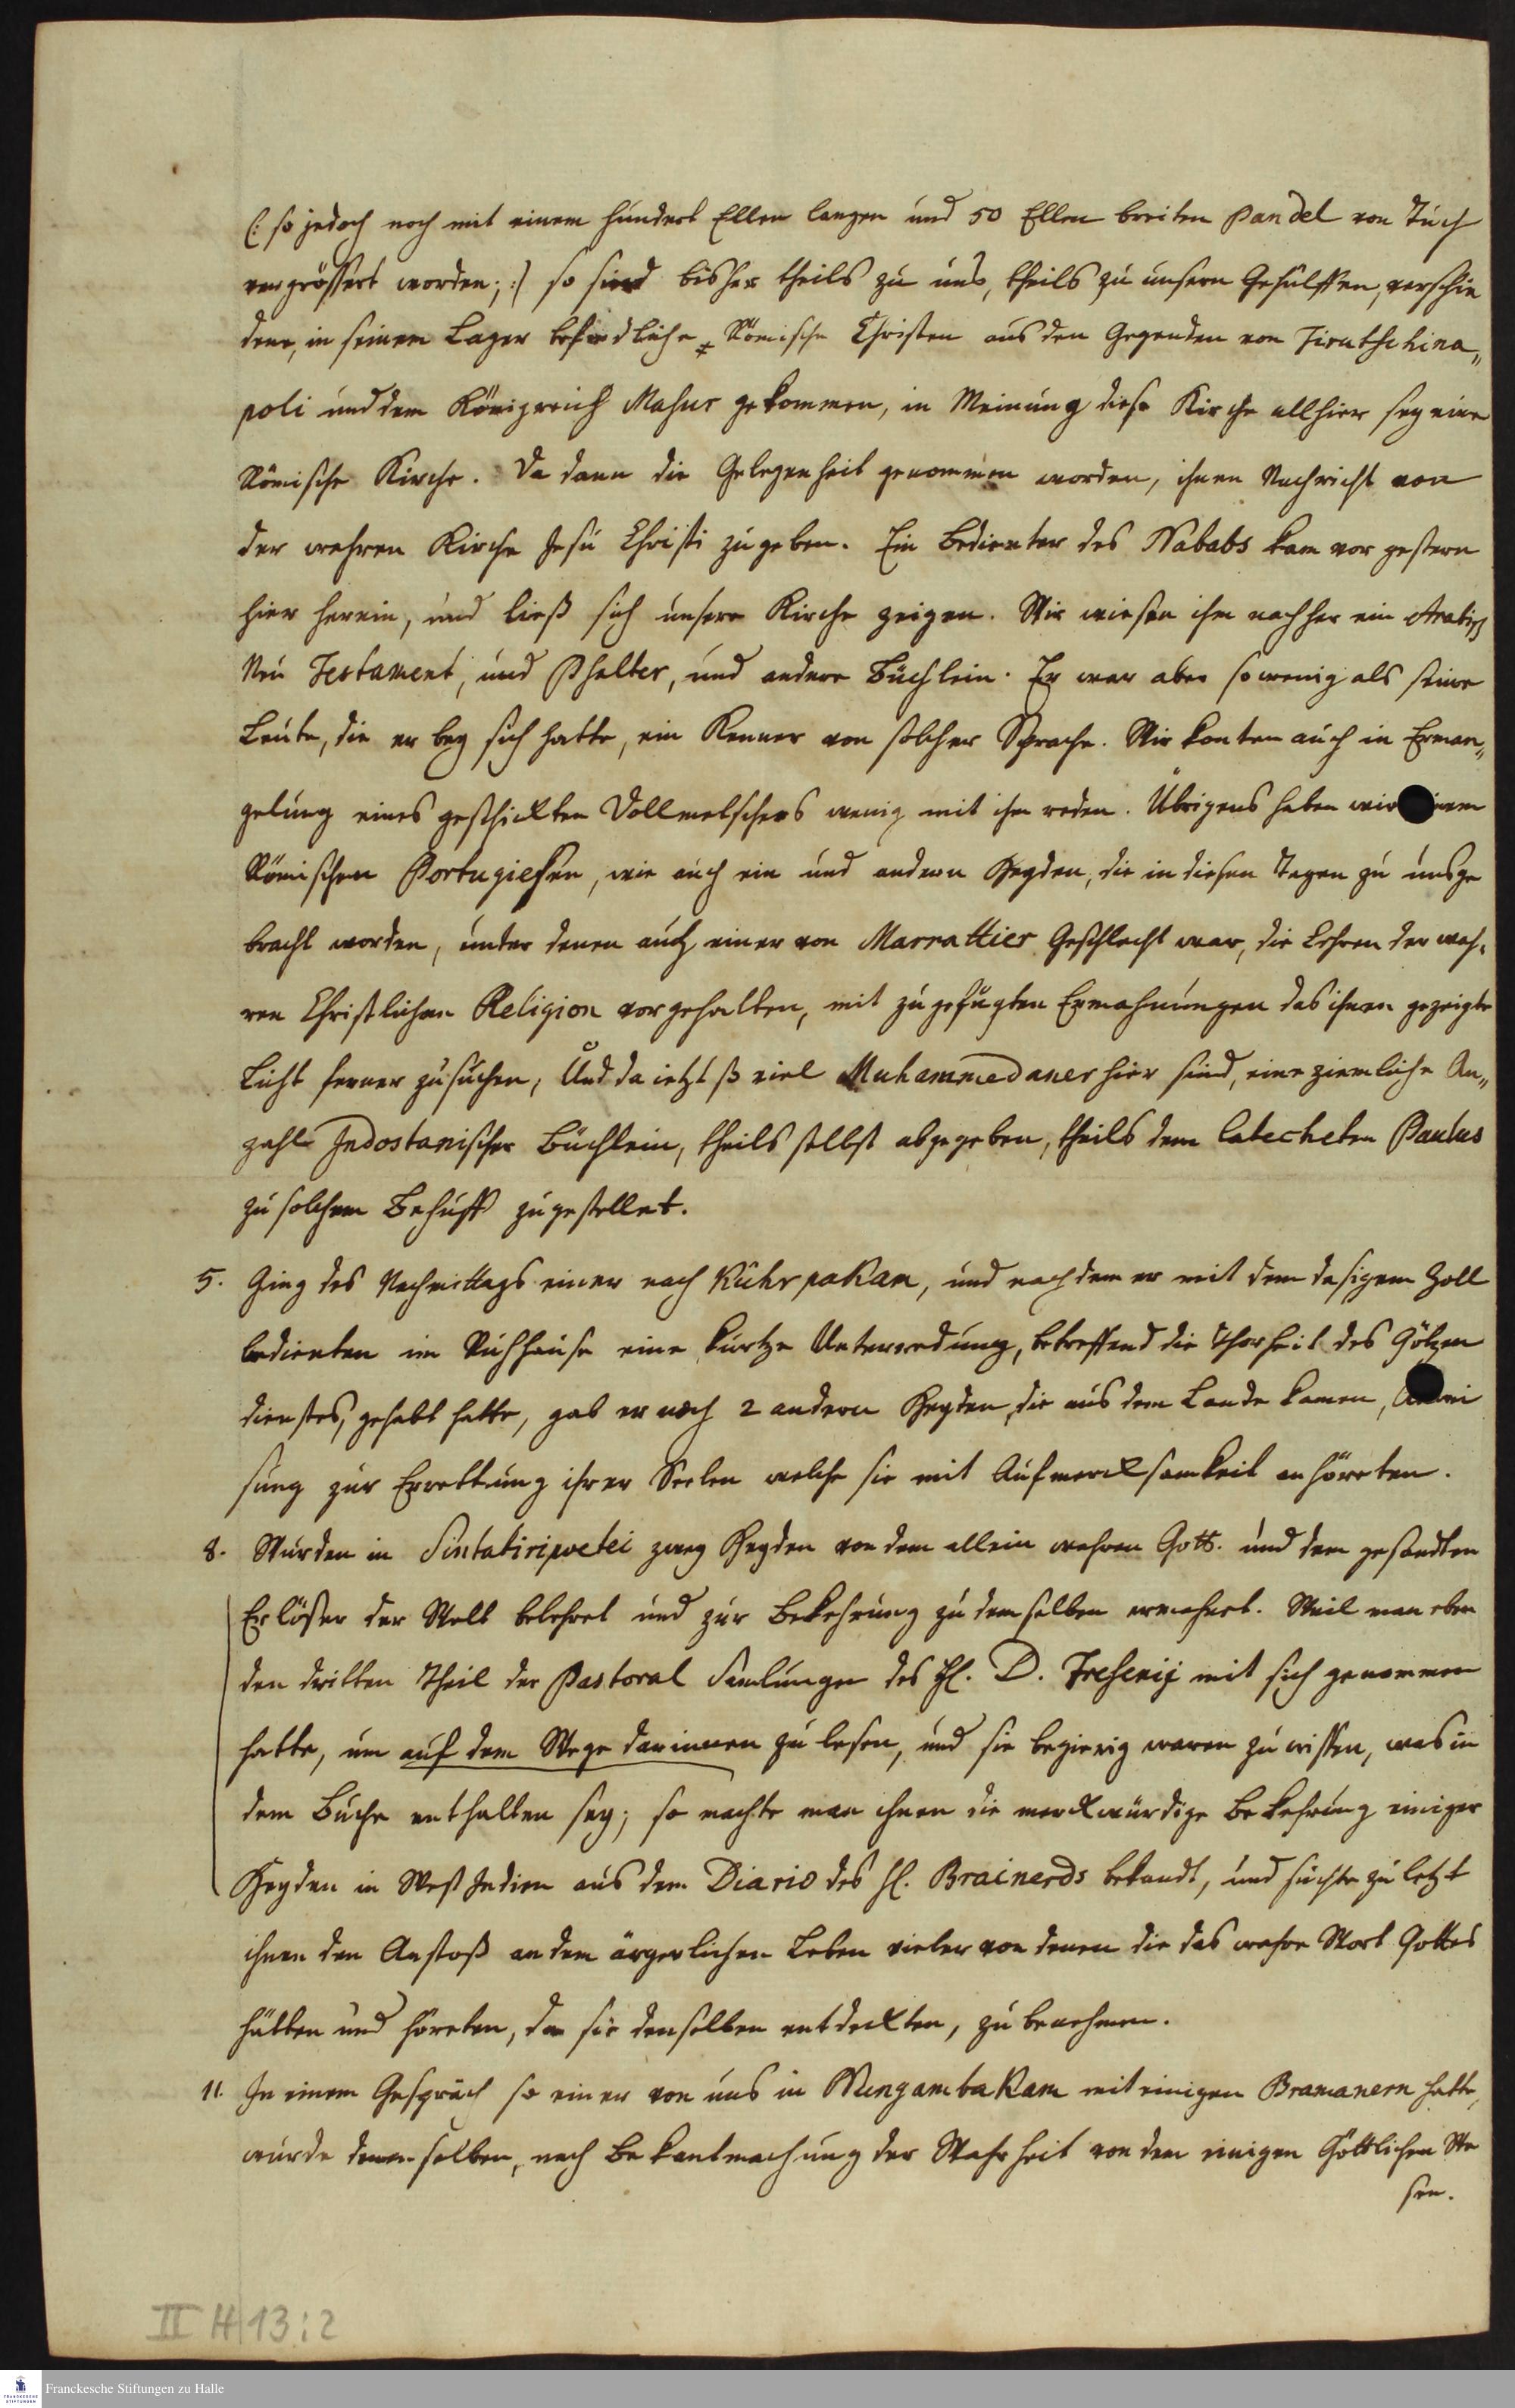 (: so jedoch noch mit einem hundert Ellen langen und 50 Ellen breiten Pandel von Tuch
vergrössert worden; :) so sind bisher theils zu uns, theils zu unsern Gehülffen, verschie
dene, in seinem Lager befindliche Römische Christen aus den Gegenden von Tirutschina„
poli und dem Königreich Masur gekommen, in Meinung diese Kirche allhier sey eine
Römische Kirche. Da dann die Gelegenheit genommen worden, ihnen Nachricht von
der wahren Kirche Jesu Christi zu geben. Ein Bedienter des Nababs kam vorgestern
hier herein, und ließ sich unsere Kirche zeigen. Wir wiesen ihm nachher ein Arabisch
Neu Testament, und Psalter, und andere Büchlein. Er war aber so wenig als seine
Leute, die er bey sich hatte, ein Kenner von solcher Sprache. Wir konten auch in Erman„
gelung eines geschickten Dollmetschers wenig mit ihm reden. Übrigens haben wir einem
Römischen Portugiesen, wie auch ein und andern Heyden, die in diesen Tagen zu uns ge
bracht worden, unter denen auch einer von Marrattier Geschlecht war, die Lehren der wah„
ren Christlichen Religion vorgehalten, mit zugefügten Ermahnungen das ihnen gezeigte
Licht ferner zu suchen; Und da ietzt so viel Muhammedaner hier sind, eine ziemliche An„
zahl Indostanischer Büchlein, theils selbst abgegeben, theils dem Catecheten Paulus
zu solchem Behuff zugestellet.
5. Ging des Nachmittags einer nach Kührpakam, und nachdem er mit dem dasigem Zoll
bedienten im Ruhhause eine kurtze Unterredung, betreffend die Thorheit des Götzen
dienstes, gehabt hatte, gab er noch 2 andern Heyden, die aus dem Lande kamen, Anwei
sung zur Errettung ihrer Seelen welche sie mit Aufmercksamkeit anhöreten.
8. Wurden in Sintatiripoetei zwey Heyden von dem allein wahren Gott und dem gesandten
Erlöser der Welt belehret und zur Bekehrung zu demselben ermahnet. Weil man eben
den dritten Theil der Pastoral Samlungen des H. D. Fresenij mit sich genommen
hatte, um auf dem Wege darinnen zu lesen, und sie begierig waren zu wissen, was in
dem Buche enthalten sey; so machte man ihnen die merckwürdige Bekehrung einiger
Heyden in West Indien aus dem Diario des H. Brainerds bekandt, und suchte zu letzt
ihnen den Anstoß an dem ärgerlichen Leben vieler von denen die das wahre Wort Gottes
hätten und höreten, da sie denselben entdeckten, zu benehmen.
11. In einem Gespräch so einer von uns in Wungambakam mit einigen Bramanern hatte,
wurde denenselben, nach Bekantmachung der Wahrheit von dem einigen Göttlichen We
sen.
II H 13 : 2
Franckesche Stiftungen zu Halle